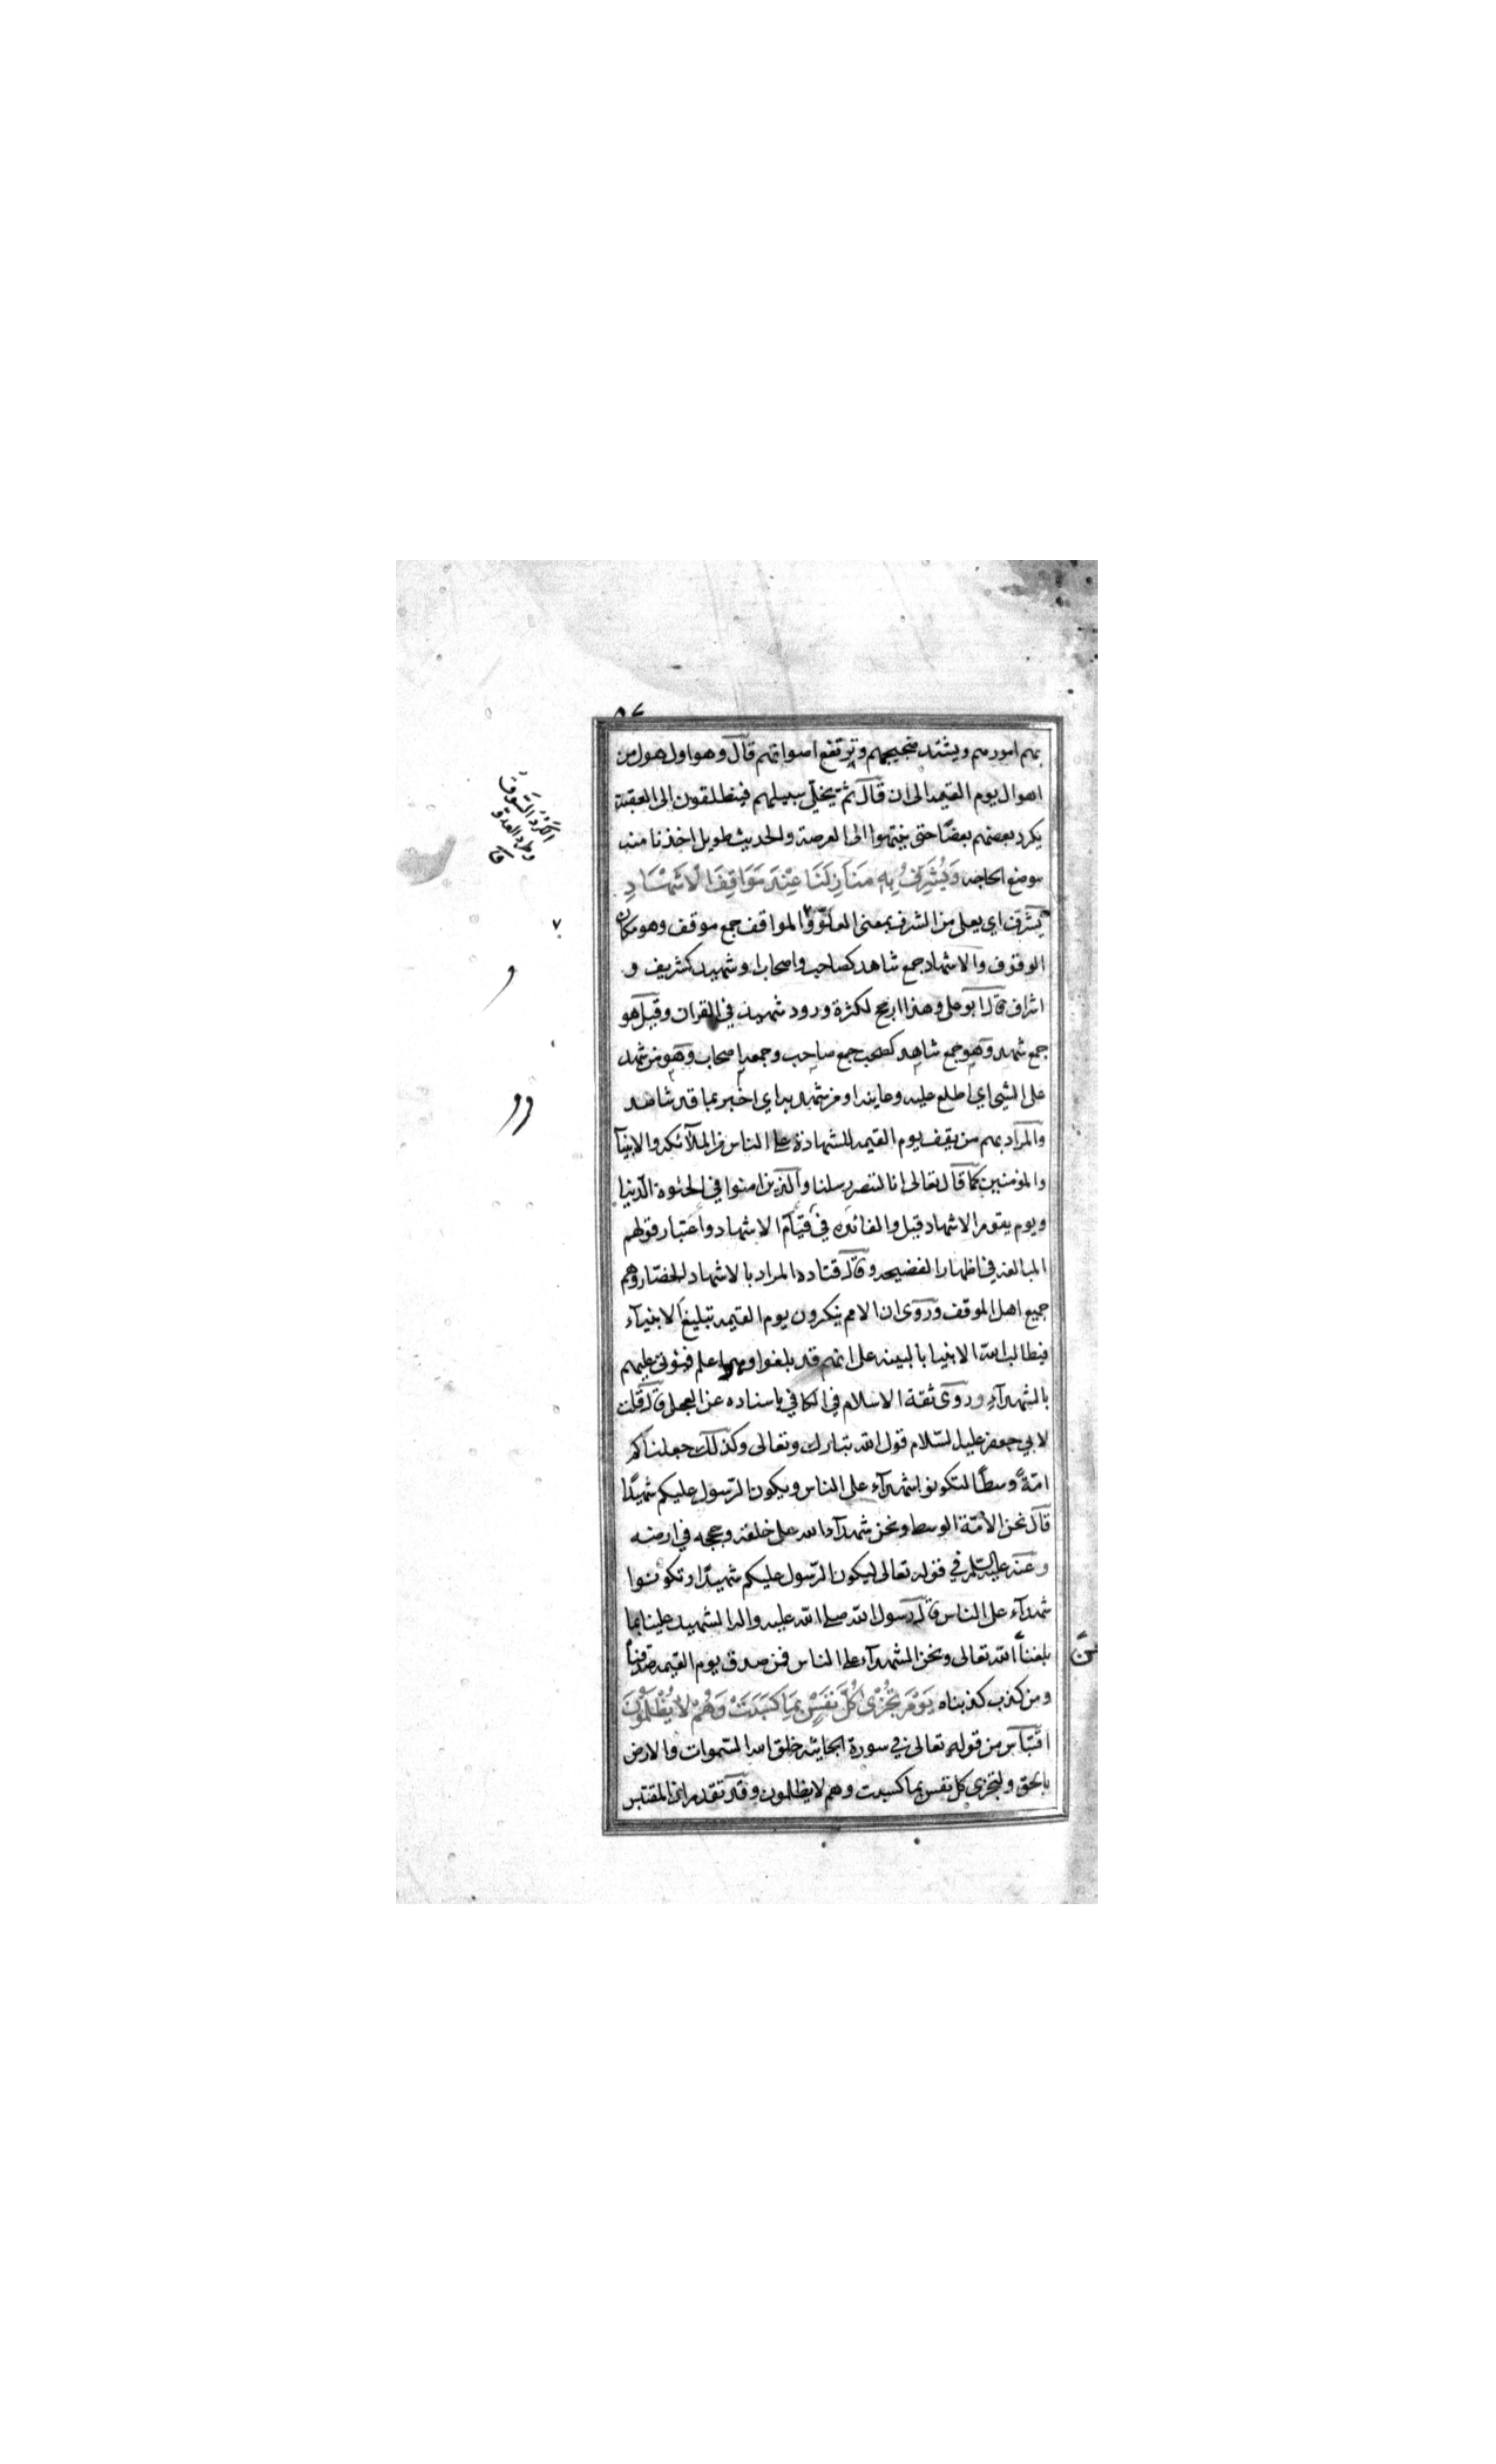 بهم امورهم ويشتد ضجيجهم وترتفع اصواتهم قال وهو اول هول من
اهوال يوم القيمه الى ان قال ثم يخلّى سبيلهم فينطلقون الى العقبة
يكرد بعضهم بعضًا حتى ينتهوا الى العرصة والحديث طويل اخذنا منه
موضع الحاجه وَيُشَرِّفُ بِهِ مَنَازِلَنَا عِنْدَ مَوَاقِفِ الْاَشْهَادِ
يشرّف اي يعلى من الشرف بمعنى العلوّ والمواقف جمع موقف وهو مكان
الوقوف والاشهاد جمع شاهد كصاحب واصحاب او شهيد كشريف و
اشراف قال ابو على وهذا ارجح لكثرة ورود شهيد في القران وقيل هو
جمع شهد وهو جمع شاهد كصحب جمع صاحب وجمعه اصحاب وهو من شهد
على الشي اي اطلع عليه وعاينه او من شهد به اي اخبر بما قد شاهد
والمراد بهم من يقف يوم القيمه للشهادة على الناس من الملآئكه والانبيآ
والمؤمنين كما قال تعالى انا لننصر رسلنا والذين امنوا في الحيوة الدّنيا
ويوم يقوم الاشهاد قيل والفائده في قيام الاشهاد واعتبار قولهم
المبالغه في اظهار الفضيحه وقال قتاده المراد بالاشهاد الحضّار وهم
جميع اهل الموقف وروى ان الامم ينكرون يوم القيمه تبليغ الانبيآء
فيطالب الله الانبيا بالبينه على انهم قد بلغوا وهو اعلم فيؤتى عليهم
بالشهدآء وروى ثقة الاسلام في الكافي باسناده عن العجلى قال قلت
لابي جعفر عليه السّلام قول الله تبارك وتعالى وكذلك جعلناكم
امّةً وسطًا لتكونوا شهدآء على الناس ويكون الرّسول عليكم شهيدًا
قال نحن الامّة الوسط ونحن شهدآء الله على خلقه وحججه في ارضه
وعنه عليه السّلم في قوله تعالى ليكون الرّسول عليكم شهيدًا وتكونوا
شهدآء على الناس قال رسول الله صلى الله عليه واله الشهيد علينا بما
بلغنا الله تعالى ونحن الشهدآء على الناس فمن صدق يوم القيمه صدقناه
ومن كذب كذبناه يَوْمَ تُجْزٰى كُلُّ نَفْسٍ بِمَا كَسَبَتْ وَهُمْ لَا يُظْلَمُونَ
اقتباس من قوله تعالى في سورة الجاثيه خلق الله السّموات والارض
بالحق ولتجزى كل نفس بما كسبت وهم لا يظلمون وقد تقدم ان المقتبس
الكَرْدُ السَّوقُ
وطرد العدو
ق
عن